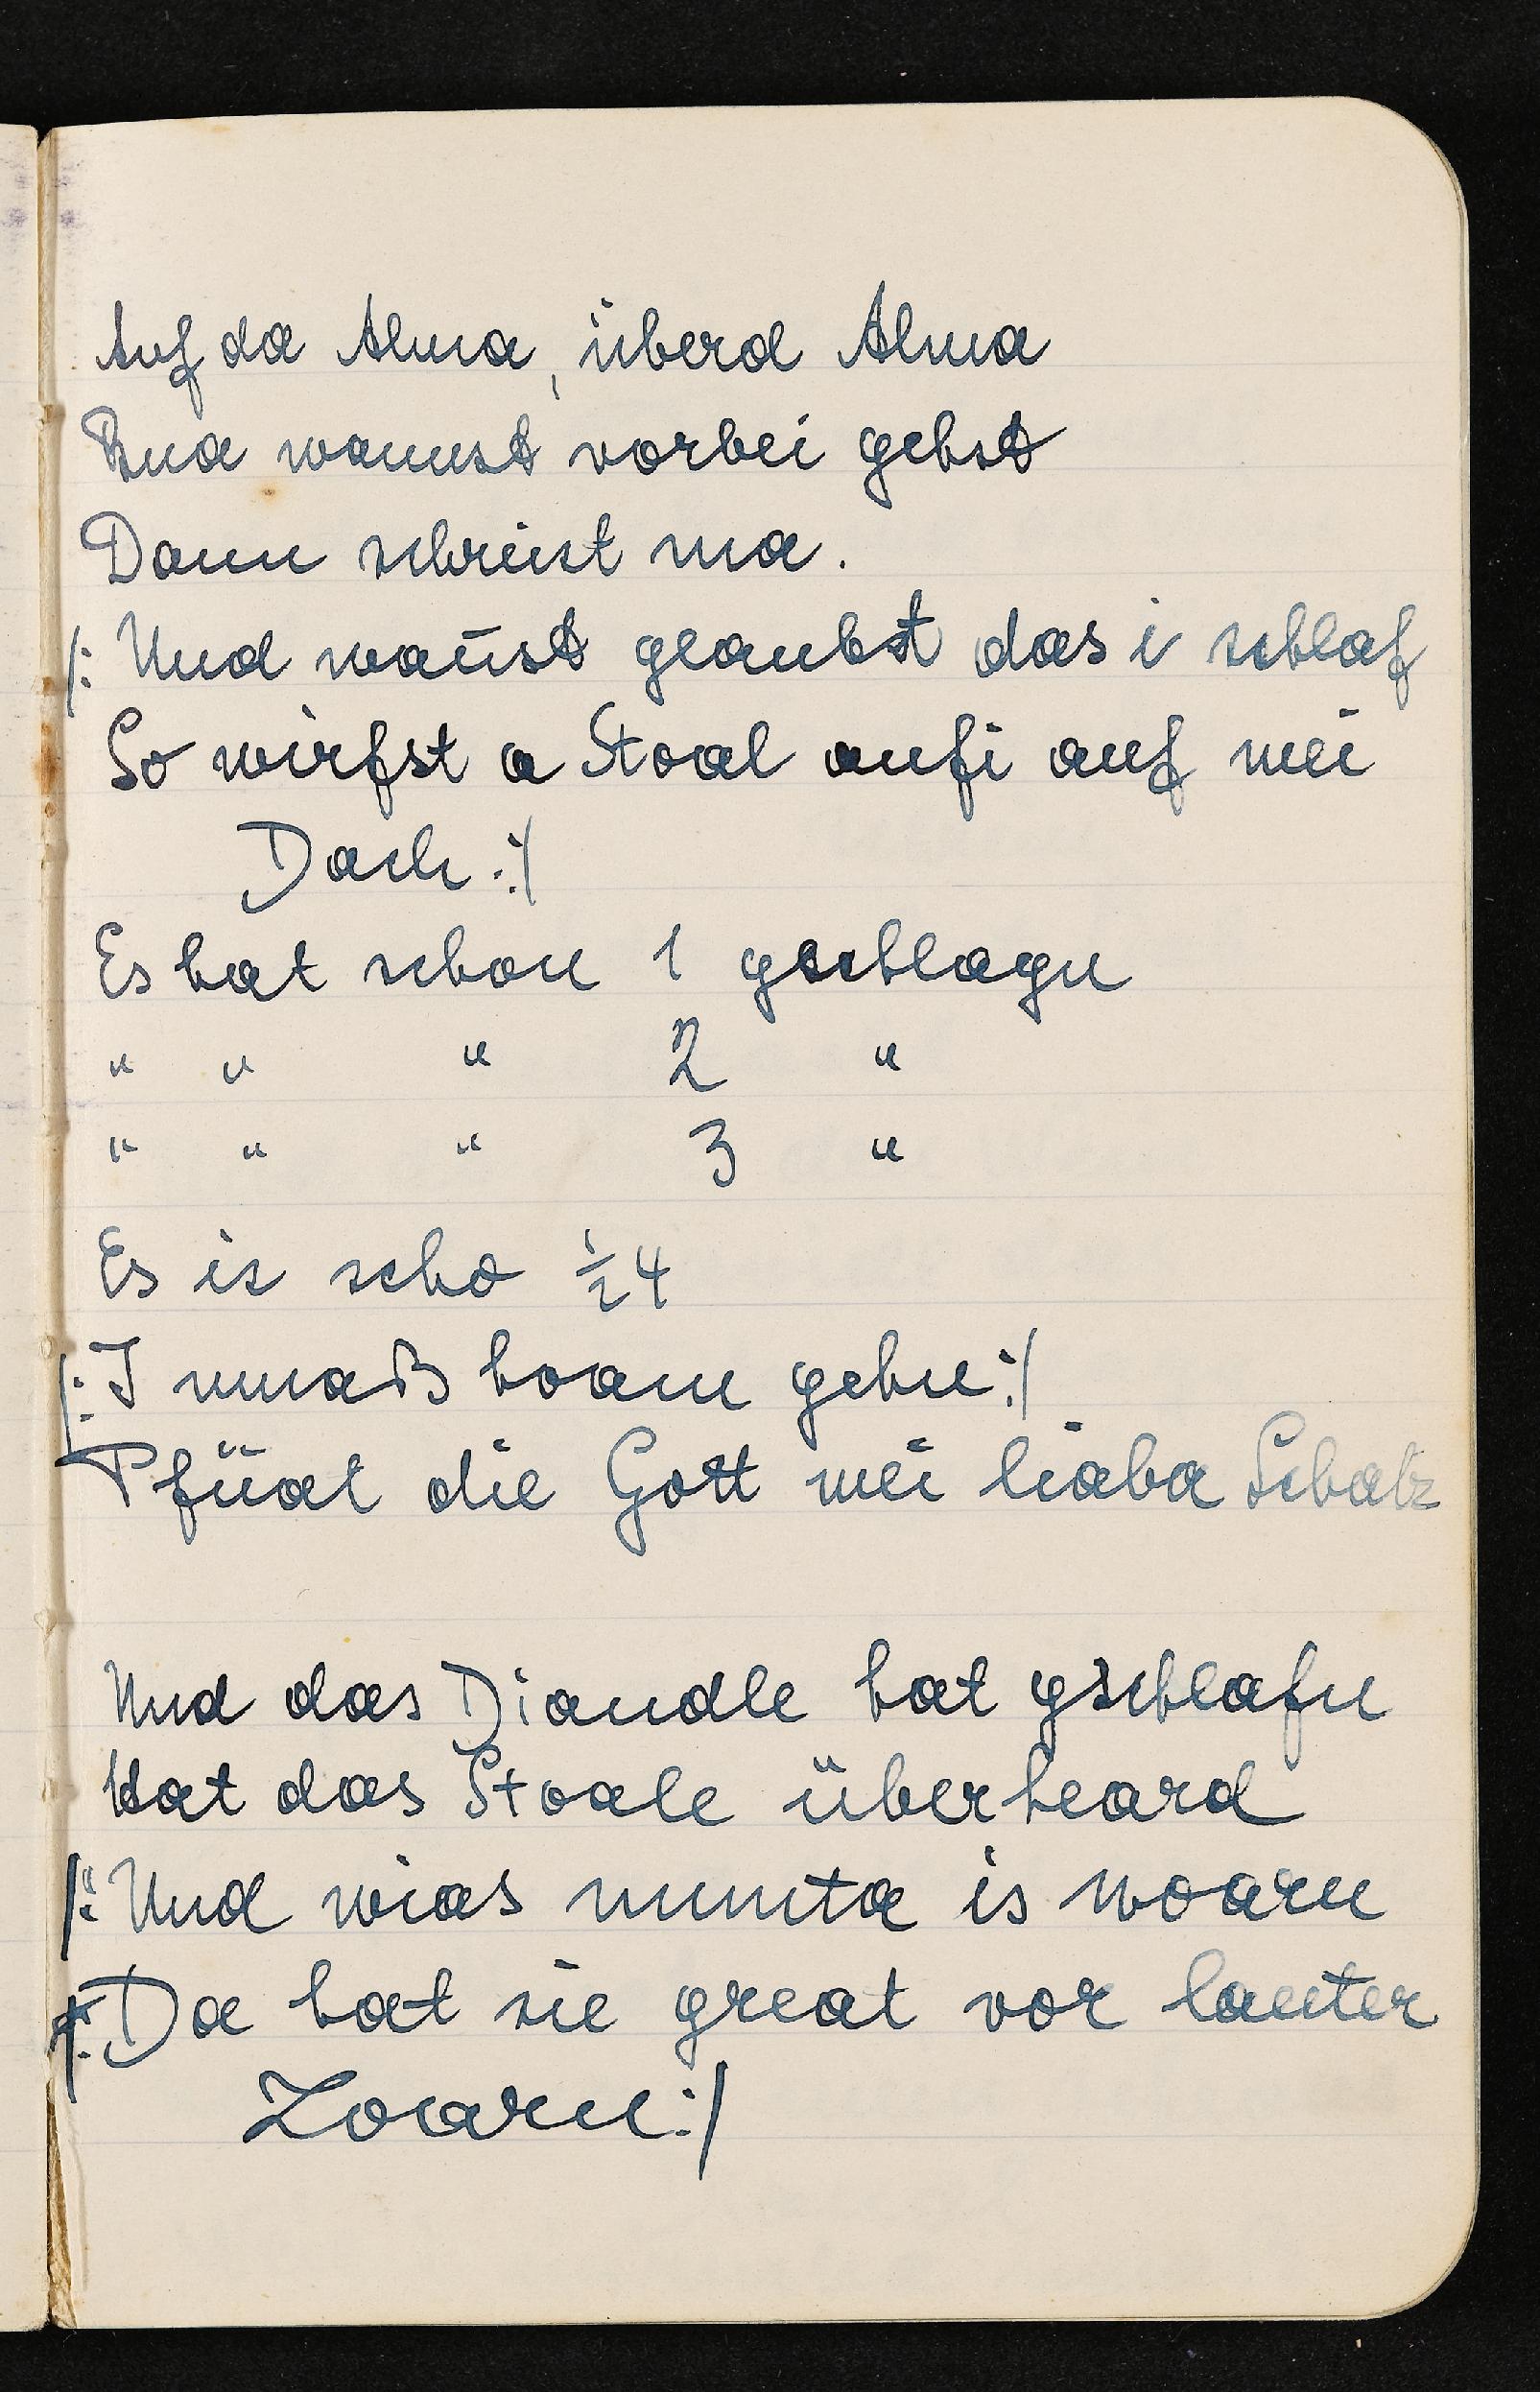 Auf da Alma, überd Alma
Bua wannst vorbei gehst
Dann schreist ma.
/: Und wan̄st glaubst das i schlaf
So wirfst a Stoal aufi auf mei
Dach :/
Es hat schon 1 gschlagn
" " " 2 "
" " " 3 "
Es is scho ½4
/: I muaß hoam gehn :/
Pfüat die Gott mei liaba Schatz
Und das Diandle hat gschlafn
Hat das Stoale überheard
/: Und wias munta is woarn
/: Da hat sie great vor lauter
Zoarn :/